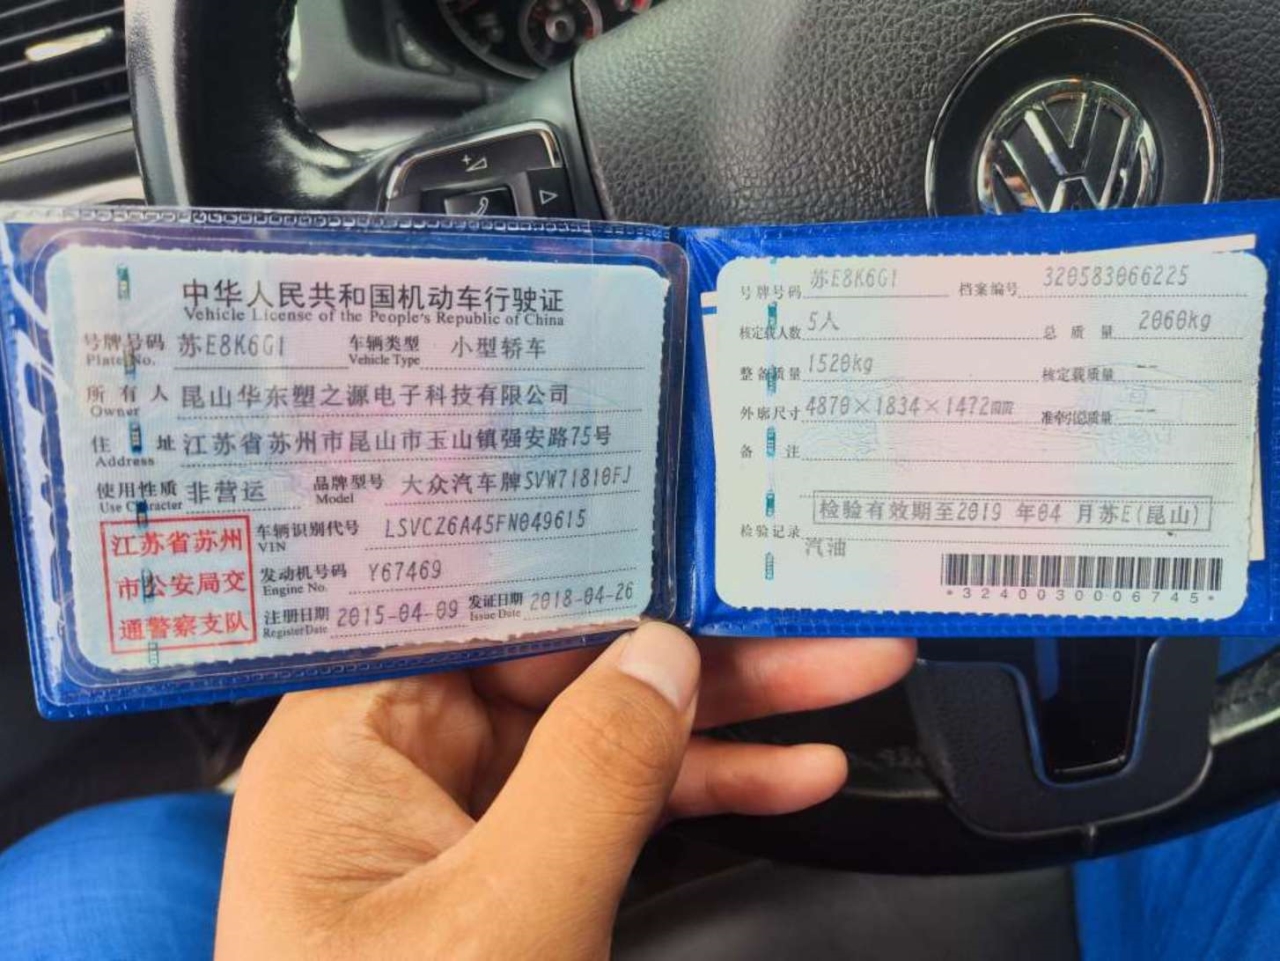 中华人民共和国机动车行驶证
Vehicle License of the People's Republic of China
号牌号码 苏E8K6G1 车辆类型 小型轿车
Plate No. Vehicle Type
所有人 昆山华东塑之源电子科技有限公司
Owner
住址 江苏省苏州市昆山市玉山镇强安路75号
Address
使用性质 非营运 品牌型号 大众汽车牌SVW71810FJ
Use Character Model
江苏省苏州
市公安局交
通警察支队
车辆识别代号 LSVCZ6A45FN049615
VIN
发动机号码 Y67469
Engine No.
注册日期 2015-04-09 发证日期 2018-04-26
Register Date Issue Date
号牌号码 苏E8K6G1 档案编号 320583066225
核定载人数 5人 总质量 2060kg
整备质量 1520kg 核定载质量 --
外廓尺寸 4870×1834×1472mm 准牵引总质量 --
备注
检验有效期至2019 年04 月苏E(昆山)
检验记录
汽油
*3240030006745*